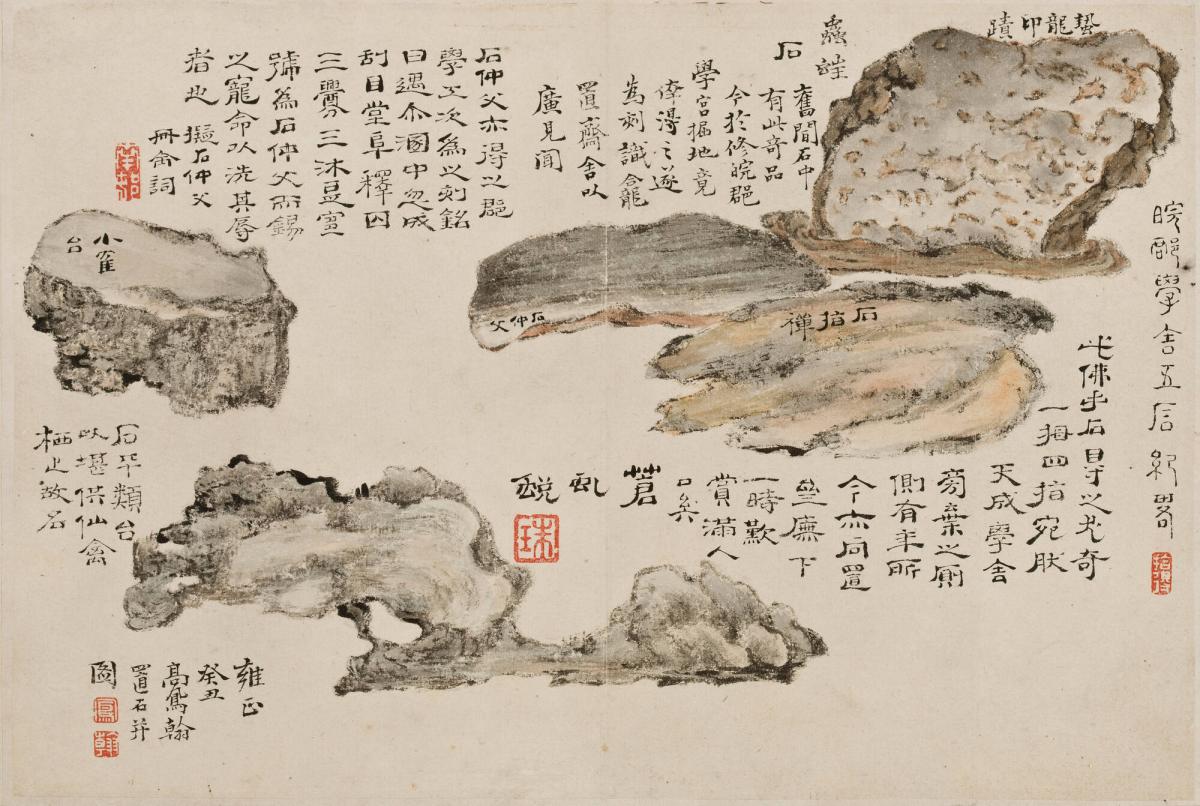 皖郡學舍五石紀畧
蟄龍印蹟
蟲蛀
石
舊聞石中
有此奇品
今於修皖郡
學宮掘地竟
倖得之遂
為刻識龕
置齋舍以
廣見聞
石指禪
此佛手石得之尤奇
一拇四指宛肰
天成學舍
旁棄之廁
側有年所
今亦同置
廡下
一時歎
賞滿人
口矣
石仲父
石仲父亦得之郡
學工次為以刻銘
曰遇尒溷中忽成
刮目堂阜釋囚
三釁三沐
號為石仲父而錫
以寵命以洗其辱
者也 擬石仲父
冊命詞
南邨
小雀
台
石平類台
以堪供仙禽
栖止故名
蒼虬蛻
雍正
癸丑
高鳳翰
置石并
圖
鳳
翰